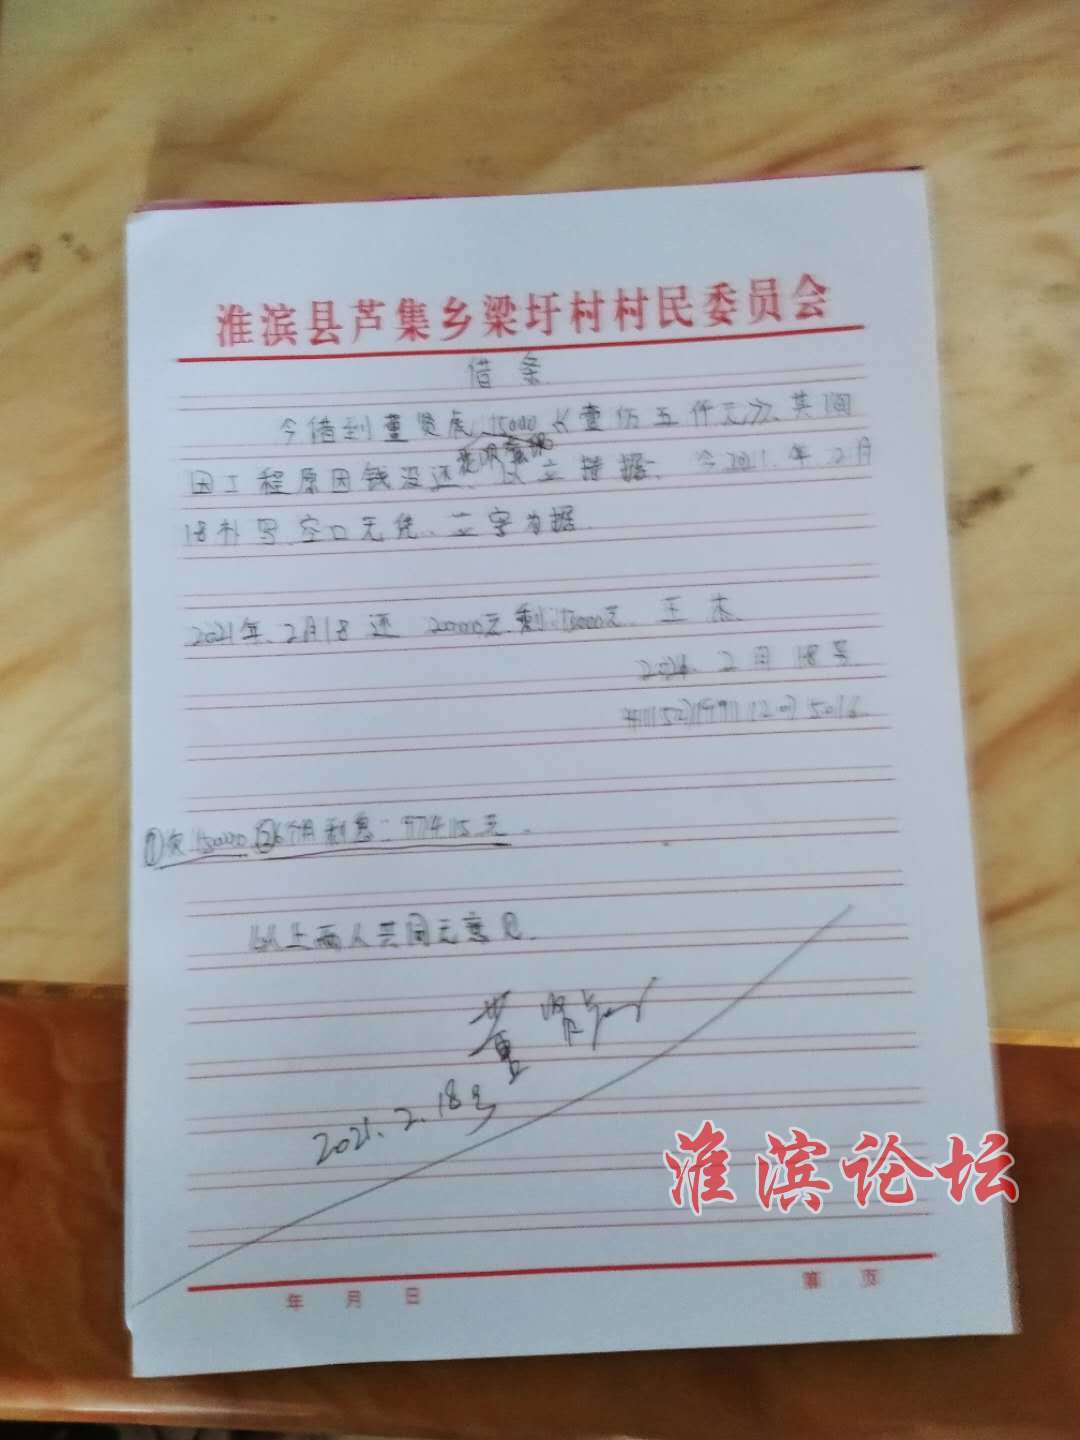 淮滨县芦集乡梁圩村村民委员会
借条
今借到董贤虎 15000 长壹仿五仟元
因工程原因钱没还、以立 据、今2011.年2月
18补写、空口无凭、立字为据
2021年、2月18还 20000元 剩 元 王杰
2021. 2月18号
①欠 150000 ②6个月利息: 97415元.
以上两人共同无意见.
董贤虎
2021.2.18号
年 月 日
第 页
淮滨论坛